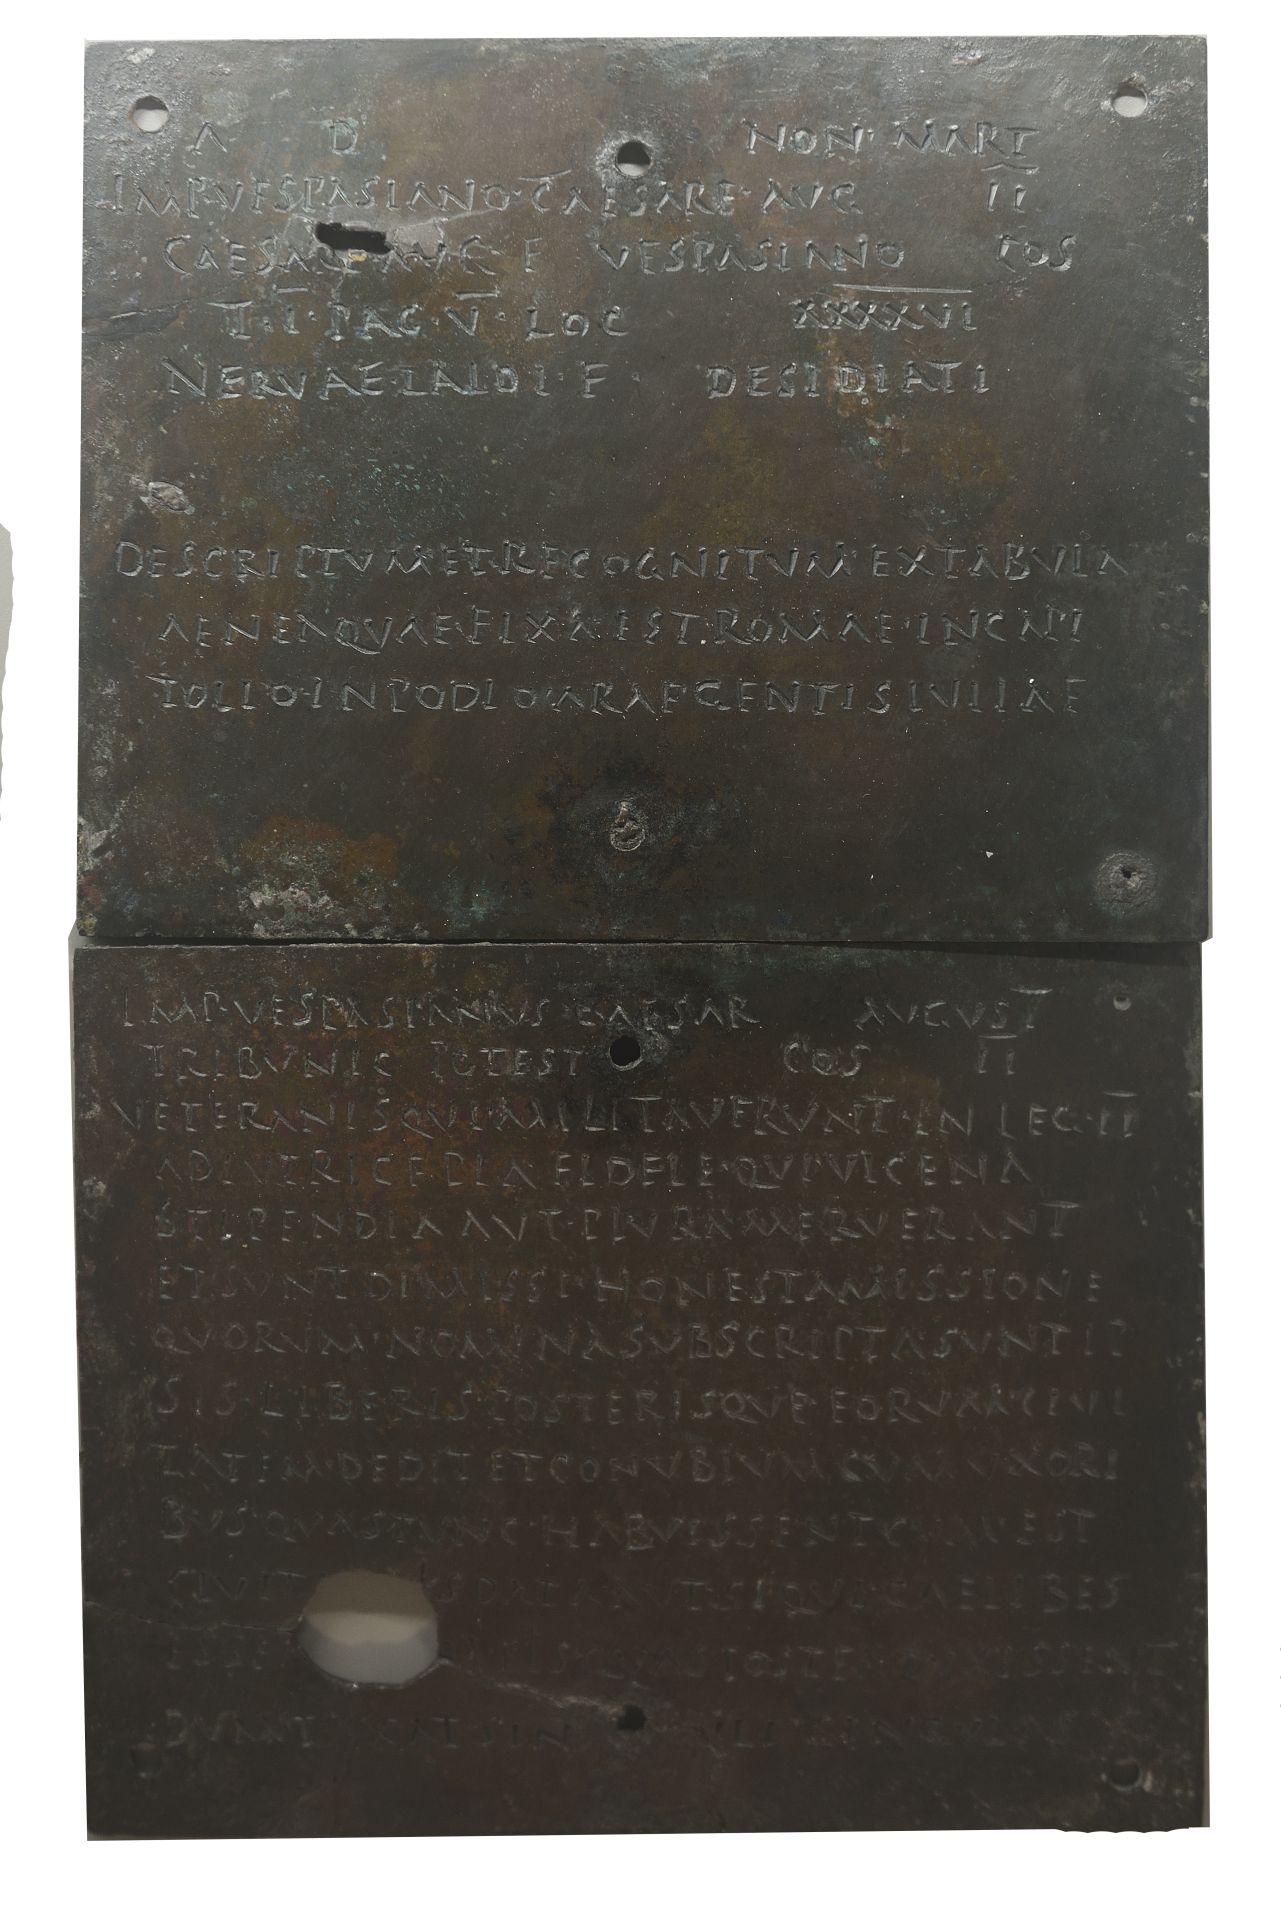 A D NON MART
IMP·VESPASIANO·CAESARE·AVG II
CAESARE AVG F VESPASIANO COS
T·I·PAG·V·LOC XXXXVI
NERVAE·LAIDI·F· DESIDIATI
DESCRIPTVM·ET·RECOGNITVM·EX TABVLA
AENEA QVAE·FIXA·EST·ROMAE·IN CAPI
TOLIO·IN PODIO·ARAE GENTIS IVLIAE
IMP·VESPASIANVS·CAESAR AVGVST
TRIBVNIC POTEST COS II
VETERANIS QVI MILITAVERVNT·IN LEG·II
ADIVTRICE PIA FIDELE·QVI VICENA
STIPENDIA AVT·PLVRA MERVERANT
ET SVNT DIMISSI·HONESTA MISSIONE
QVORVM·NOMINA SVBSCRIPTA SVNT IP
SIS·LIBERIS POSTERISQVE EORVM CIVI
TATEM·DEDIT ET CONVBIVM CVM VXORI
BVS QVAS TVNC·HABVISSENT CVM EST
CIVIT IS DATA AVT·SI QVI CAELIBES
QVAS POSTEA DVXISSENT
DVMT SIN SINGVLAS